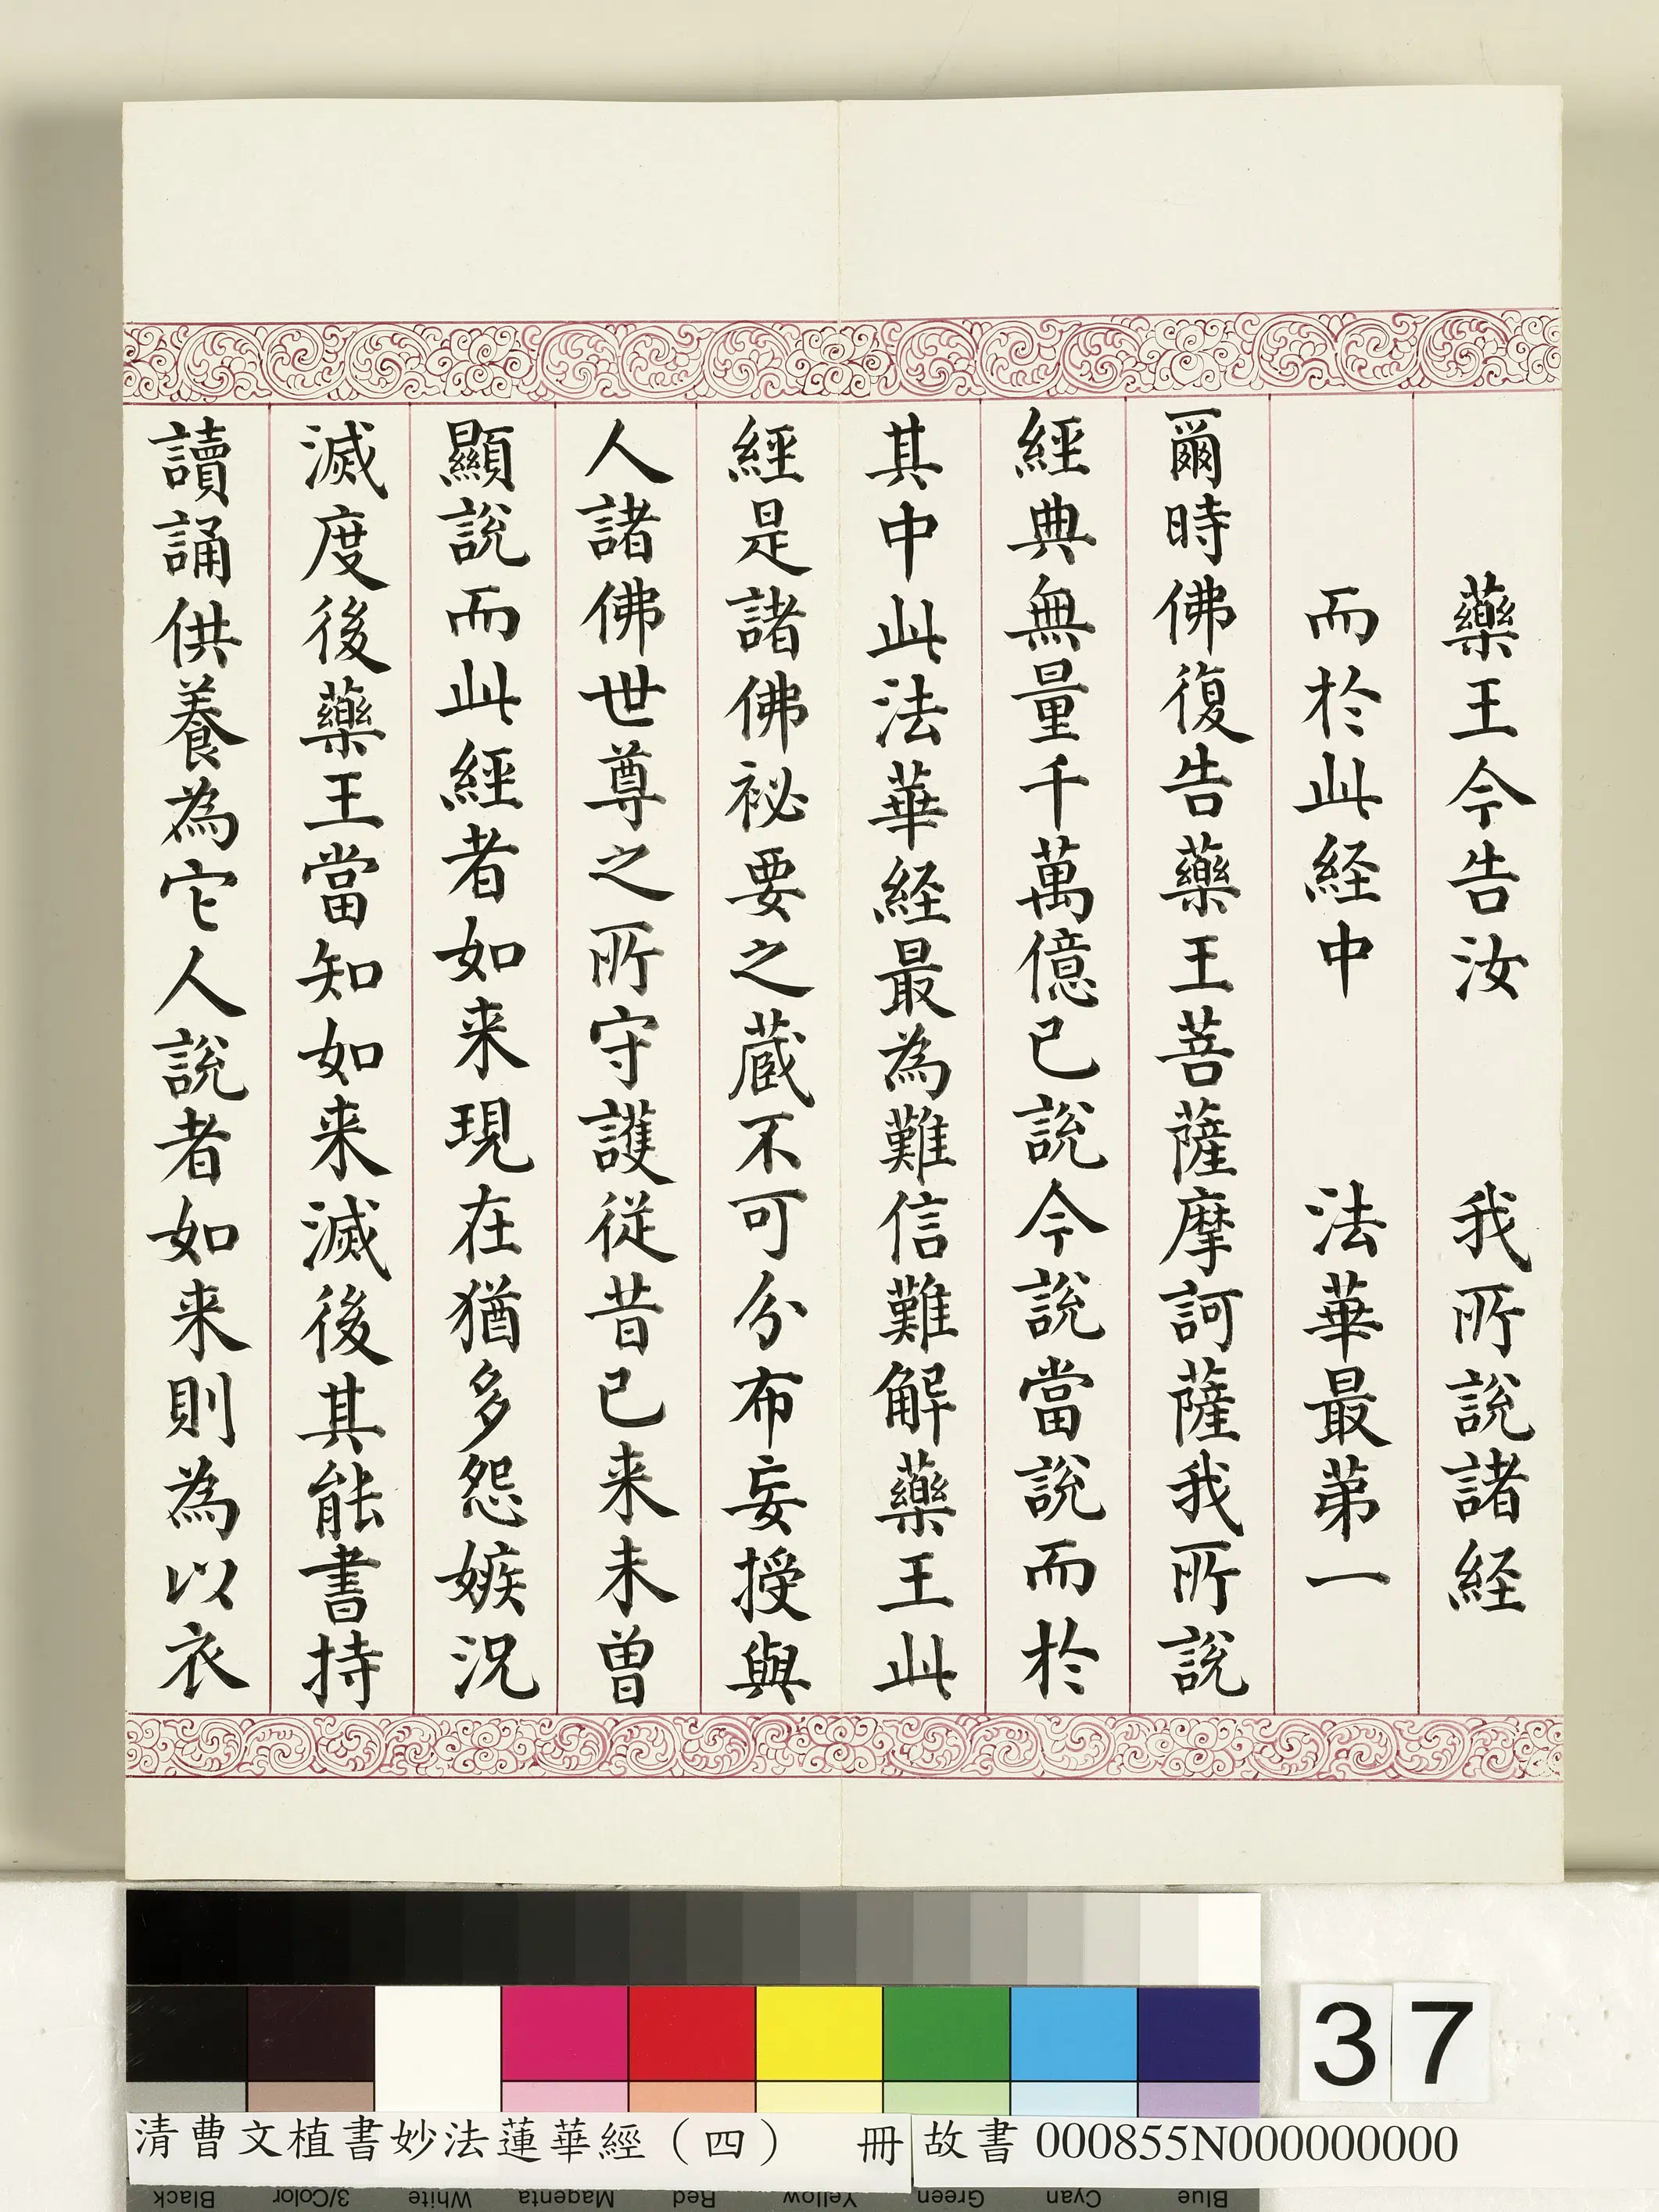 藥王今告汝　我所說諸経
而於此経中　法華最苐一
爾時佛復告藥王菩薩摩訶薩我所說
經典無量千萬億已說今說當說而於
其中此法華経最為難信難解藥王此
經是諸佛祕要之蔵不可分布妄授與
人諸佛世尊之所守護從昔已来未曾
顯說而此經者如来現在猶多怨嫉況
滅度後藥王當知如来滅後其能書持
讀誦供養為它人說者如来則為以衣
37
清曹文植書妙法蓮華經（四）　冊
故書 000855N000000000
Black 3/Color White Magenta Red Yellow Green Cyan Blue